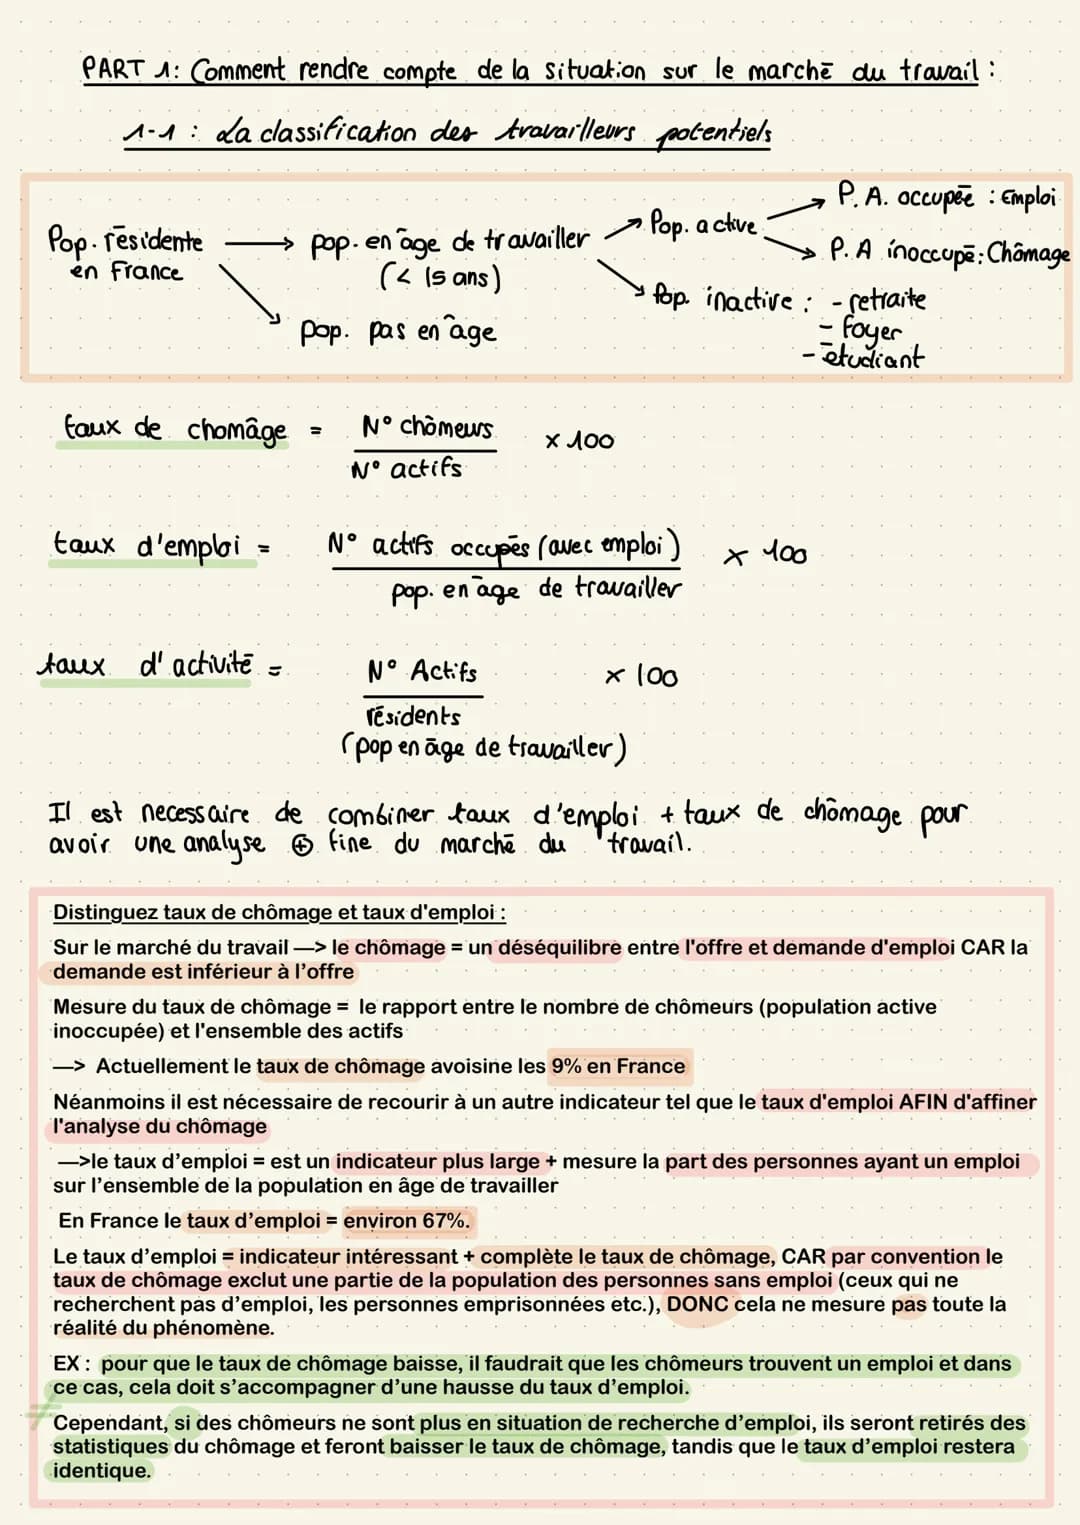 PART 1: Comment rendre compte de la situation sur le marché du travail :
1-1 : La classification des travailleurs potentiels
Pop. résidente en France → pop. en âge de travailler (< 15 ans)
pop. pas en âge
Pop. active
P.A. occupée : Emploi
P.A inoccupé : Chômage
Pop. inactive : - retraite
- foyer
- étudiant
taux de chomâge = N° chômeurs x 100
N° actifs
taux d'emploi = N° actifs occupés (avec emploi) x 100
pop. en âge de travailler
taux d'activité = N° Actifs x 100
résidents
(pop en âge de travailler)
Il est necessaire de combiner taux d'emploi + taux de chômage pour
avoir une analyse ⊕ fine du marché du travail.
Distinguez taux de chômage et taux d'emploi :
Sur le marché du travail —> le chômage = un déséquilibre entre l'offre et demande d'emploi CAR la
demande est inférieur à l’offre
Mesure du taux de chômage = le rapport entre le nombre de chômeurs (population active
inoccupée) et l'ensemble des actifs
—> Actuellement le taux de chômage avoisine les 9% en France
Néanmoins il est nécessaire de recourir à un autre indicateur tel que le taux d'emploi AFIN d'affiner
l'analyse du chômage
—>le taux d’emploi = est un indicateur plus large + mesure la part des personnes ayant un emploi
sur l’ensemble de la population en âge de travailler
En France le taux d’emploi = environ 67%.
Le taux d’emploi = indicateur intéressant + complète le taux de chômage, CAR par convention le
taux de chômage exclut une partie de la population des personnes sans emploi (ceux qui ne
recherchent pas d’emploi, les personnes emprisonnées etc.), DONC cela ne mesure pas toute la
réalité du phénomène.
EX : pour que le taux de chômage baisse, il faudrait que les chômeurs trouvent un emploi et dans
ce cas, cela doit s’accompagner d’une hausse du taux d’emploi.
≠
Cependant, si des chômeurs ne sont plus en situation de recherche d’emploi, ils seront retirés des
statistiques du chômage et feront baisser le taux de chômage, tandis que le taux d’emploi restera
identique.